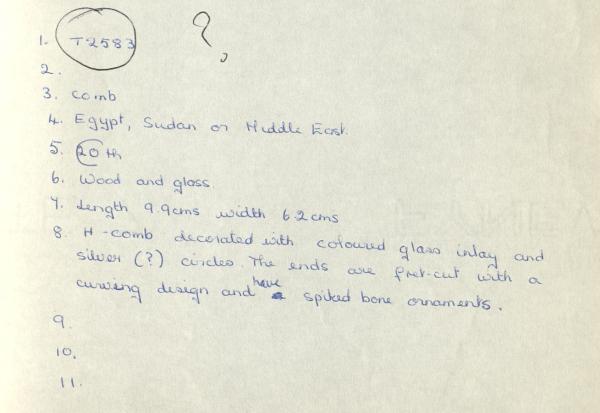 ?
1. T2583
2.
3. comb
4. Egypt, Sudan or Middle East.
5. 20th
6. Wood and glass.
7. Length 9.9cms width 6.2cms
8. H-comb decorated with coloured glass inlay and
silver (?) circles. The ends are fret-cut with a
curving design and have spiked bone ornaments.
9.
10.
11.